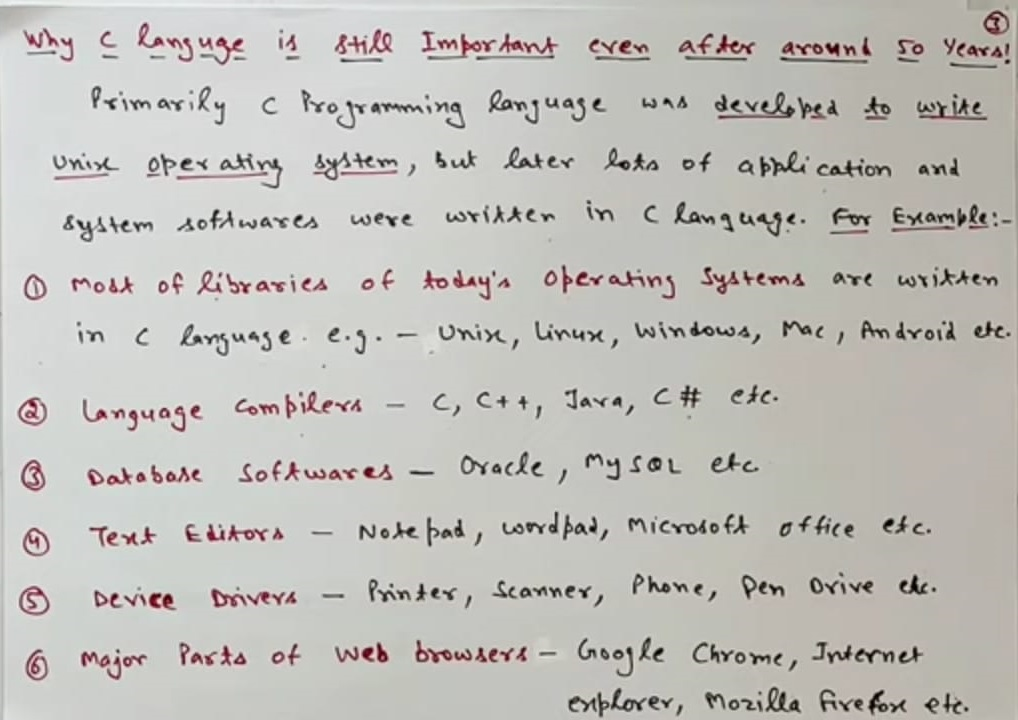 ③
Why C languge is still Important even after around 50 Years!
Primarily C Programming language was developed to write
Unix operating system, but later lots of application and
system softwares were written in C language. For Example:-
① Most of libraries of today's Operating Systems are written
in C language. e.g. - Unix, Linux, Windows, Mac, Android etc.
② Language Compilers - C, C++, Java, C# etc.
③ Database Softwares - Oracle, MySQL etc
④ Text Editors - Notepad, wordpad, Microsoft office etc.
⑤ Device Drivers - Printer, Scanner, Phone, Pen Drive etc.
⑥ Major Parts of Web browsers - Google Chrome, Internet
explorer, Mozilla firefox etc.